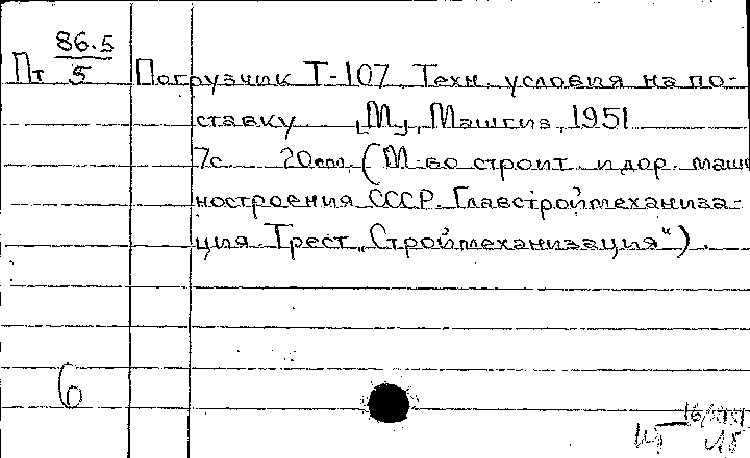 86.5
Пт 5 Погрузчик Т-107. Техн. условия на по-
ставку [М], Машгиз, 1951
7с 20см. (М-во строит. и дор. маши
ностроения СССР. Главстроймеханиза-
ция. Трест „Строймеханизация“).
6